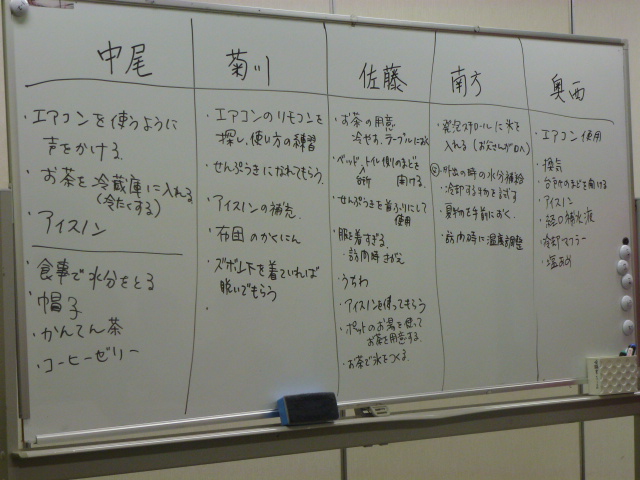 中尾
・エアコンを使うように
声をかける
・お茶を冷蔵庫に入れる
(冷たくする)
・アイスノン
・食事で水分をとる
・帽子
・かんてん茶
・コーヒーゼリー
菊川
・エアコンのリモコンを
探し、使い方の練習
・せんぷうきになれてもらう。
・アイスノンの補充
・布団のかくにん
・ズボン下を着ていれば
脱いでもらう
・
佐藤
・お茶の用意
冷やす、テーブルに
・ベッド、トイレ側のまどを
台所 開ける。
・せんぷうきを首ふりにして
使用
・服を着すぎる
・訪問時
・うちわ
・アイスノンを使ってもらう
・ポットのお湯を使って
お茶を用意する
・お茶で氷をつくる
南方
・発泡スチロールに氷を
入れる(お父さんが口へ)
外出の時の水分補給
・冷却する物を試す
・夏物を手前におく。
・訪問時に温度調整
奥西
・エアコン使用
・換気
・台所のまどを開ける
・アイスノン
・経口補水液
・冷却マフラー
・塩あめ